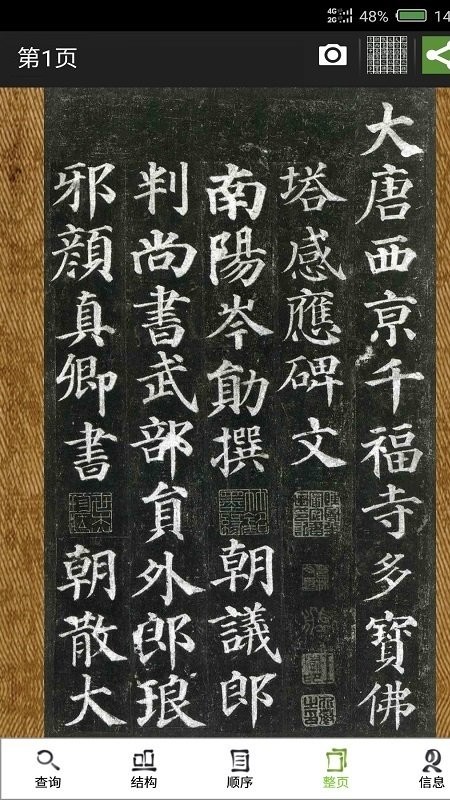 4G 2G 48% 14
第1页
大唐西京千福寺多寶佛
塔感應碑文
南陽岑勛撰 朝議郎
判尚書武部員外郎琅
邪顏真卿書 朝散大
查询 结构 顺序 整页 信息